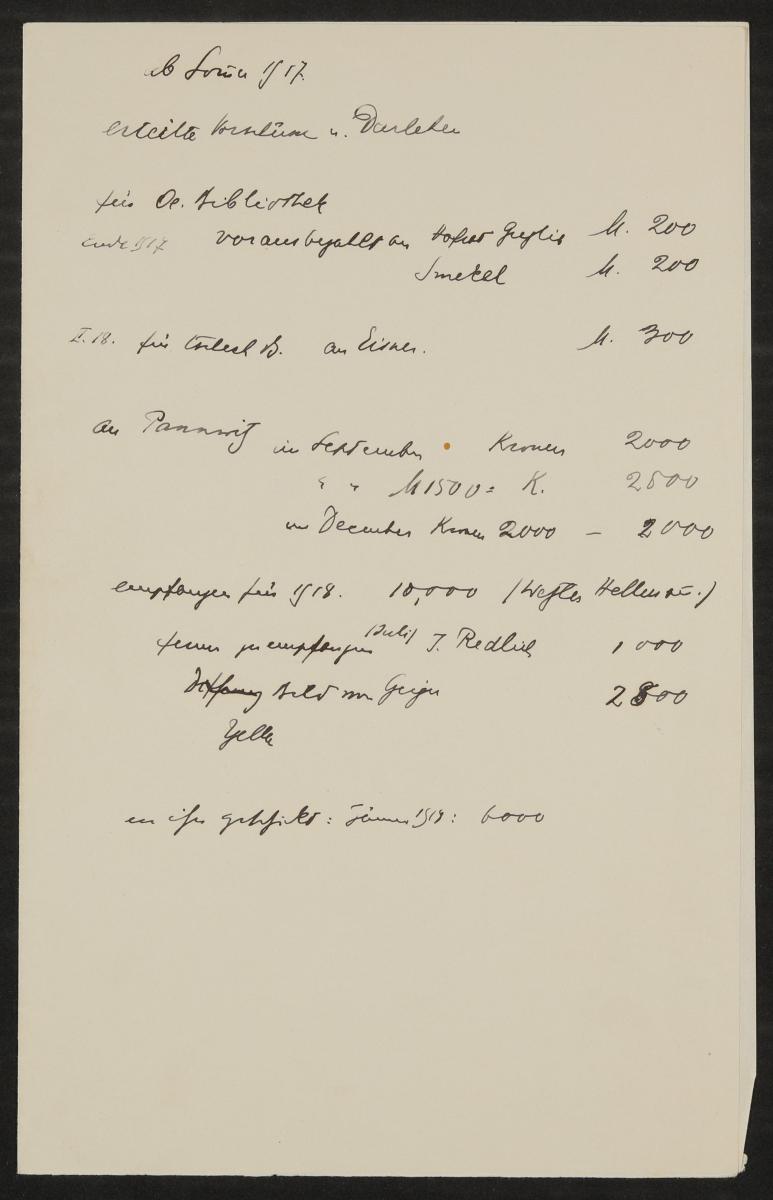 ab Som̄er 1917.
erteilte Vorschüsse u. Darlehen
für Oe. Bibliothek
Ende 1917 vorausbezahlt an Hofrat M. 200
Smekal M. 200
II. 18. für tschech B. an Eisner. M. 300
an Pannwitz im September Kronen 2000
" " M 1500 = K. 2500
im December Kronen 2000 – 2000
empfangen für 1918. 10,000 (Hellm
ferner zu empfangen J. Redlich 1000
Bild von Geiger 2800
Yella
an ihn geschickt: Jänner 1919: 6000